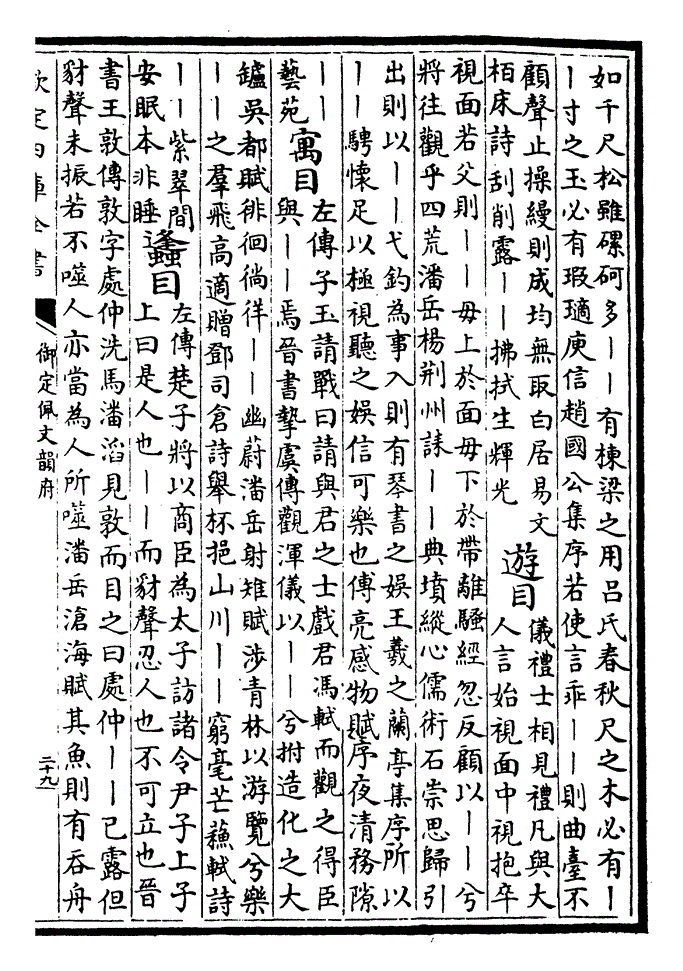 如千尺松雖磥砢多丨丨有棟梁之用吕氏春秋尺之木必有丨
丨寸之玉必有瑕瓋庾信趙國公集序若使言乖丨丨則曲臺不
顧聲止操縵則成均無取白居易文
栢床詩刮削露丨丨拂拭生輝光
遊目
儀禮士相見禮凡與大
人言始視面中視抱卒
視面若父則丨丨毋上於面毋下於帶離騷經忽反顧以丨丨兮
將往觀乎四荒潘岳楊荆州誄丨丨典墳縱心儒術石崇思歸引
出則以丨丨弋釣為事入則有琴書之娯王羲之蘭亭集序所以
丨丨騁懷足以極視聽之娯信可樂也傅亮感物賦序夜清務隙
丨丨
藝苑
寓目
左傳子玉請戰曰請與君之士戲君馮軾而觀之得臣
與丨丨焉晉書摯虞傳觀渾儀以丨丨兮拊造化之大
鑪吳都賦徘徊徜徉丨丨幽蔚潘岳射雉賦涉青林以游覽兮樂
丨丨之羣飛高適贈鄧司倉詩舉杯挹山川丨丨窮毫芒蘓軾詩
丨丨紫翠間
安眠本非睡
蠭目
左傳楚子將以商臣為太子訪諸令尹子上子
上曰是人也丨丨而豺聲忍人也不可立也晉
書王敦傳敦字處仲洗馬潘滔見敦而目之曰處仲丨丨已露但
豺聲未振若不噬人亦當為人所噬潘岳滄海賦其魚則有吞舟
欽定四庫全書
御定佩文韻府
二十九